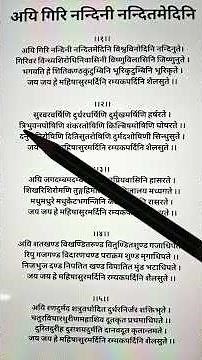 अयि गिरि नन्दिनी नन्दितमेदिनि
॥१॥
अयि गिरि नन्दिनी नन्दितमेदिनि विश्वविनोदिनि नन्दिनुते।
गिरिवर विन्ध्यशिरोधिनिवासिनी विष्णुविलासिनि जिष्णुनुते।
भगवति हे शितिकण्ठकुटुम्बिनि भूरिकुटुम्बिनि भूरिकृते
जय जय हे महिषासुरमर्दिनि रम्यकपर्दिनि शैलसुते।।
॥२॥
सुरवरवर्षिणि दुर्धरधर्षिणि दुर्मुखमर्षिणि हर्षरते।
त्रिभुवनपोषिणि शंकरतोषिणि किल्बिषमोषिणि घोषरते।।
दितिसुतरोषिणि दुर्मदशोषिणी सिन्धुसुते।
जय जय हे महिषासुरमर्दिनि रम्यकपर्दिनि शैलसुते।।
॥३॥
अयि प्रियवासिनि हासरते।
शिखरिशिरोमणि मध्यगते।
मधुमधुरे मधुकैटभगन्जिनि रासरते।
जय जय हे महिषासुरमर्दिनि रम्यकपर्दिनि शैलसुते।।
॥४॥
अयि शतखण्ड विखण्डितरुण्ड वितुण्डितशुण्ड गजाधिपते।
रिपु गजगण्ड विदारणचण्ड पराक्रम शुण्ड मृगाधिपते।।
निजभुज दण्ड निपतित खण्ड विपातित मुंड भटाधिपते।
जय जय हे महिषासुरमर्दिनि रम्यकपर्दिनि शैलसुते।।
॥५॥
अयि रणदुर्मद शत्रुवधोदित दुर्धरनिर्जर शक्तिभृते।
चतुरविचारधुरीणमहाशिव दूतकृत प्रमथाधिपते।
दुरितदुरीह दुराशयदुर्मति दानवदूत कृतान्तमते।
जय जय हे महिषासुरमर्दिनि रम्यकपर्दिनि शैलसुते।।